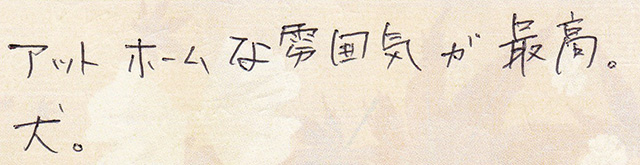 アットホームな雰囲気が最高。
犬。